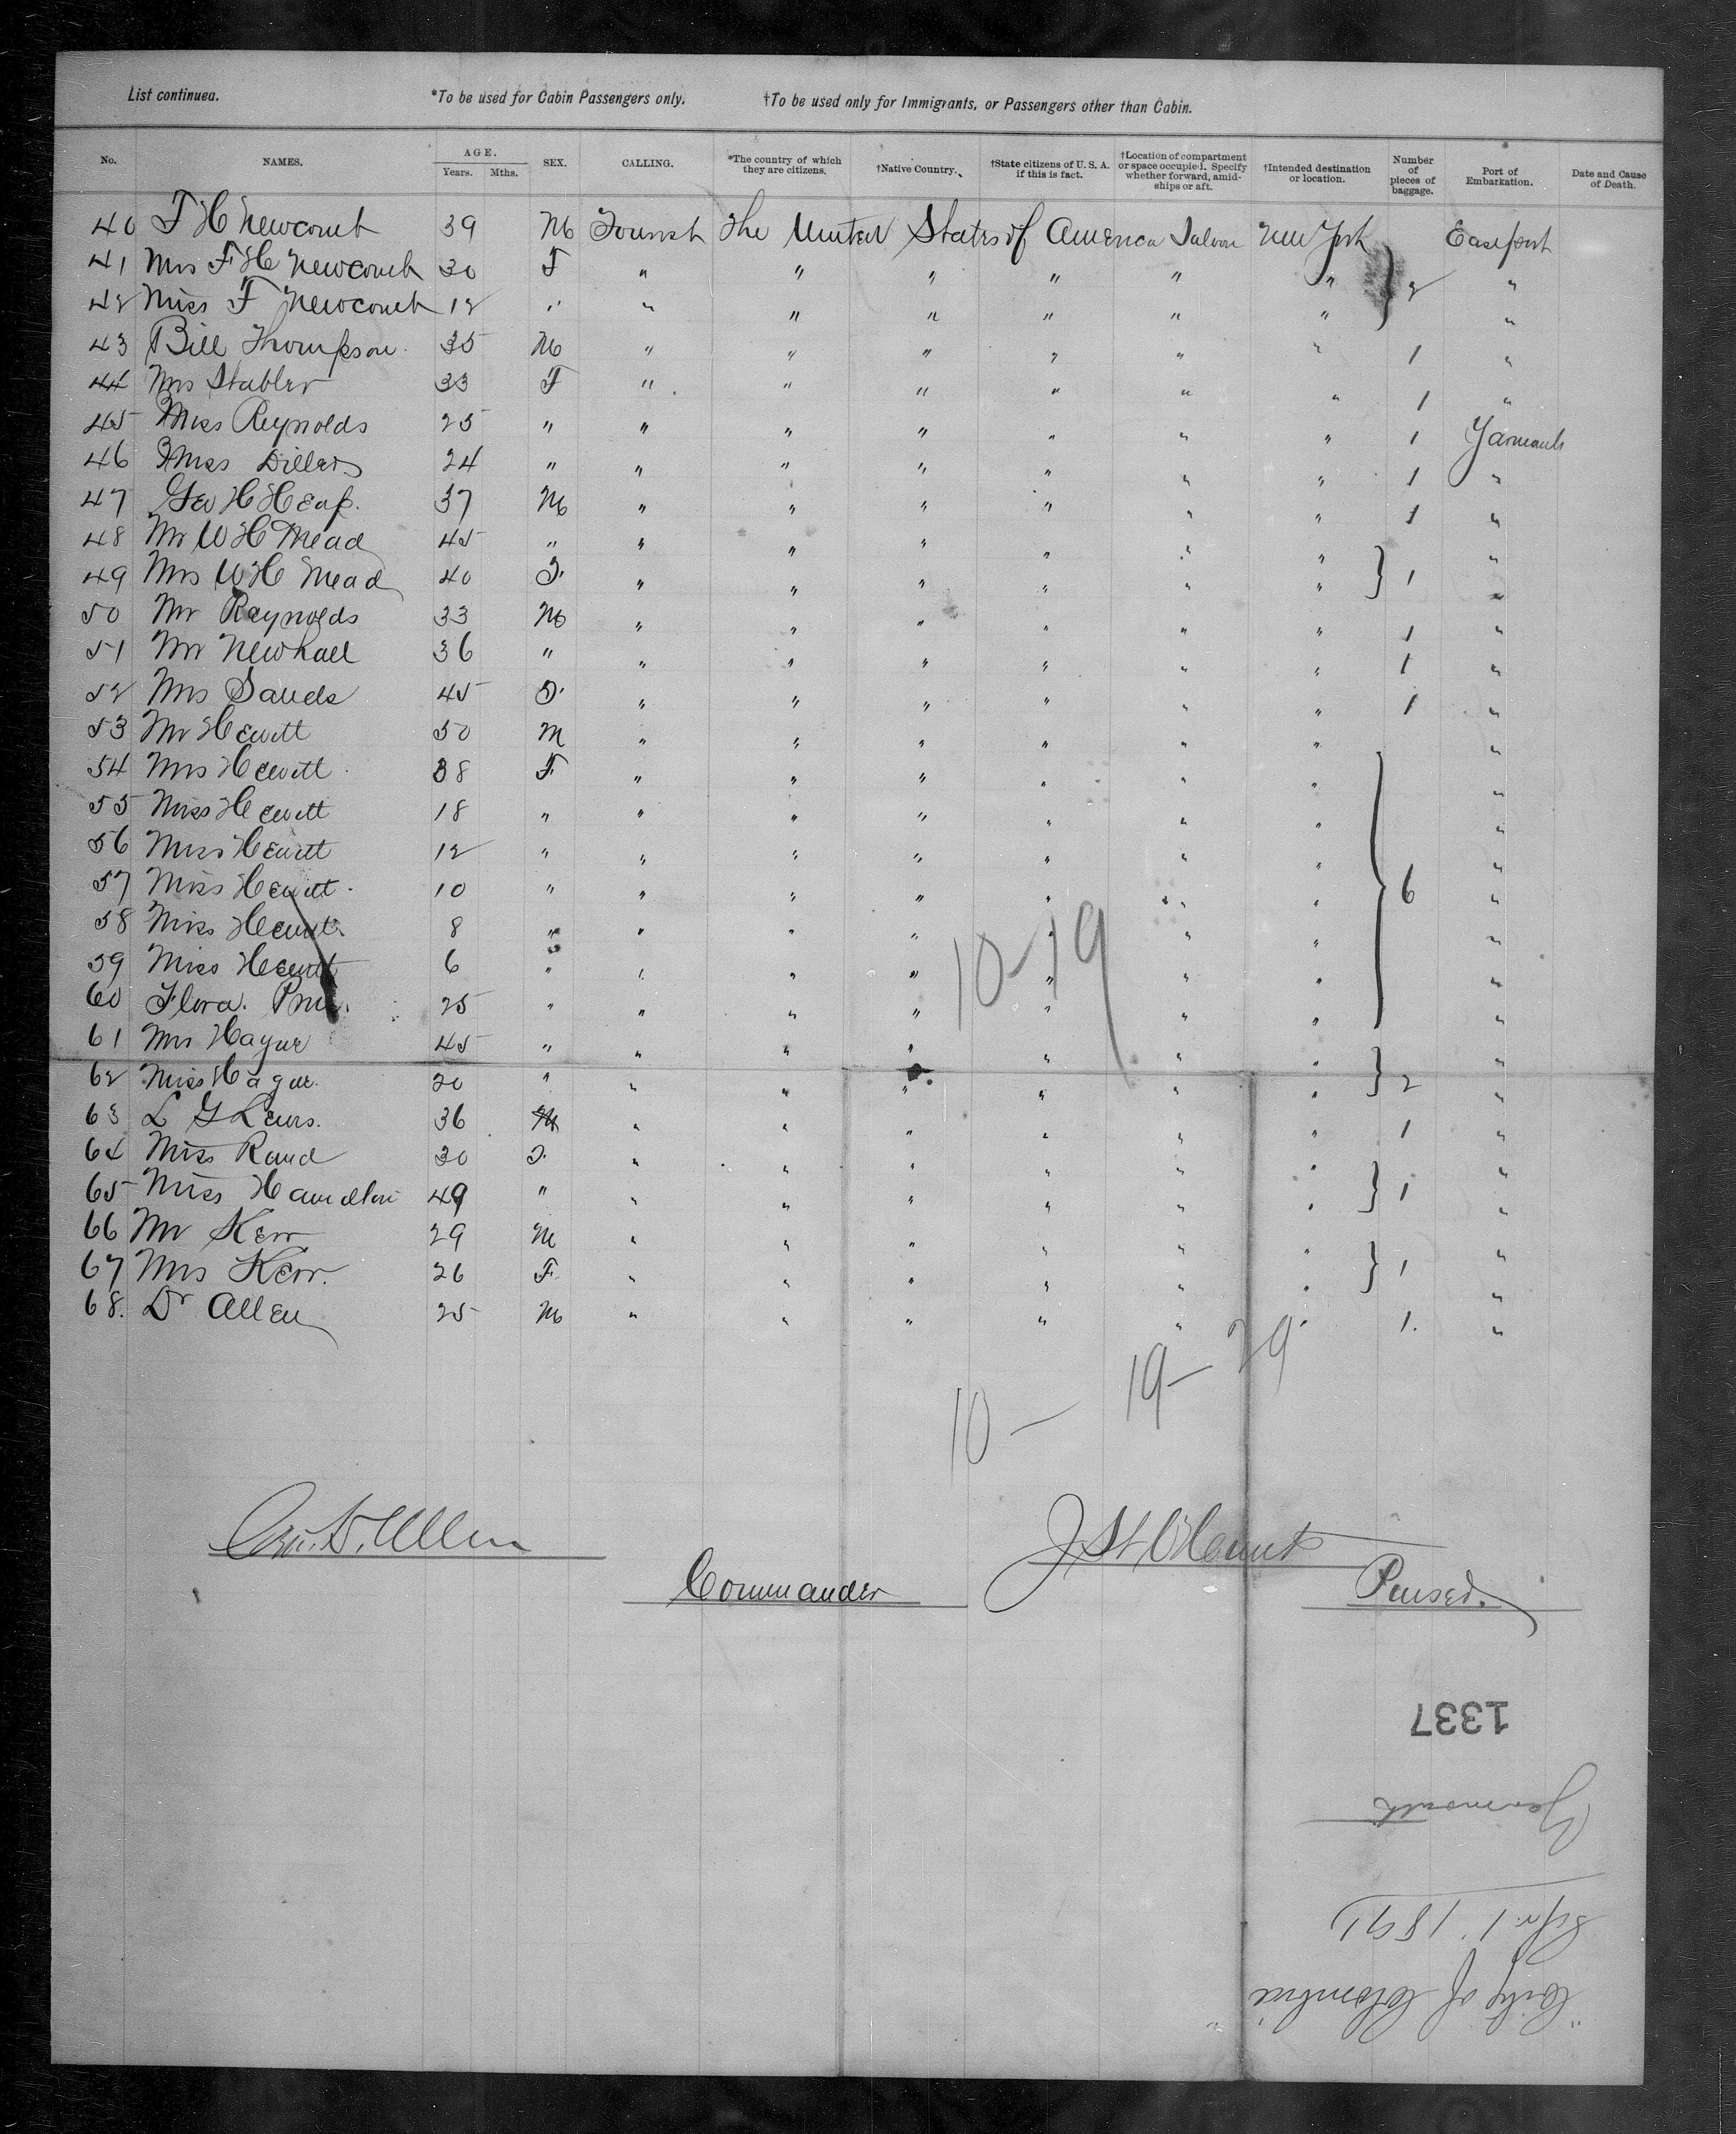 List continued. *To be used for Cabin Passengers only. †To be used only for Immigrants, or Passengers other than Cabin.
No. NAMES. AGE. Years. Mths. SEX. CALLING. *The country of which they are citizens. †Native Country. †State citizens of U. S. A. if this is fact. †Location of compartment or space occupied. Specify whether forward, amidships or aft. †Intended destination or location. Number of pieces of baggage. Port of Embarkation. Date and Cause of Death.
40 F H Newcomb 39 M Tourist The United States of America Saloon New York Eastport
41 Mrs F H Newcomb 30 F " " " " " " 2 "
42 Miss F Newcomb 12 " " " " " " " "
43 Bill Thompson 35 M " " " " " " 1 "
44 Mrs Stabler 33 F " " " " " " 1 "
45 Miss Reynolds 25 " " " " " " " 1 Yarmouth
46 Miss Dillers 24 " " " " " " " 1 "
47 Geo H Heap. 37 M " " " " " " 1 "
48 Mr W H Mead 45 " " " " " " " "
49 Mrs W H Mead 40 F. " " " " " " 1 "
50 Mr Reynolds 33 M " " " " " " 1 "
51 Mr Newhall 36 " " " " " " " 1 "
52 Mrs Sands 45 F. " " " " " " 1 "
53 Mr Hewitt 50 M " " " " " " "
54 Mrs Hewitt 38 F " " " " " " "
55 Miss Hewitt 18 " " " " " " " "
56 Miss Hewitt 12 " " " " " " " "
57 Miss Hewitt 10 " " " " " " " 6 "
58 Miss Hewitt 8 " " " " " " " "
59 Miss Hewitt 6 " " " " " " " "
60 Flora 25 " " " " " " " "
61 Mrs Hague 45 " " " " " " " "
62 Miss Hague. 20 " " " " " " " 2 "
63 L G Lewis. 36 M " " " " " " 1 "
64 Miss Rand 30 F. " " " " " " "
65 Miss Hamilton 49 " " " " " " " 1 "
66 Mr Kerr 29 M " " " " " " "
67 Mrs Kerr. 26 F " " " " " " 1 "
68. Dr Allen 25 M " " " " " " 1. "
10-19
10- 19- 29
Allen
Commander
Purser.
1337
Yarmouth
1 1891
"City of Columbia"